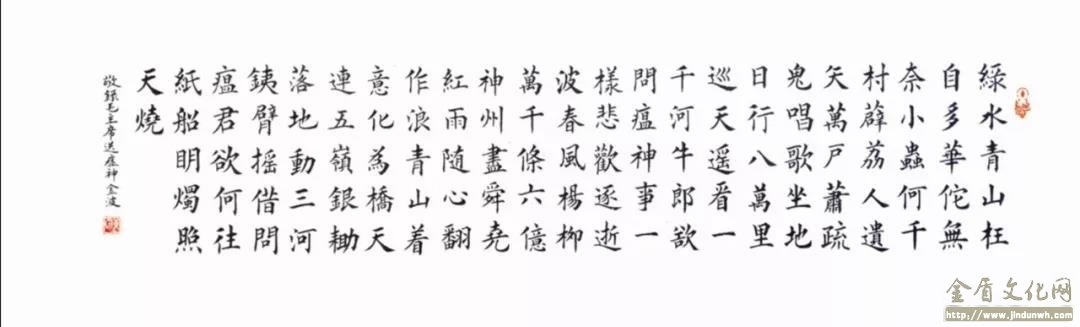 綠水青山枉
自多華佗無
奈小蟲何千
村薜荔人遺
矢萬戸蕭疏
鬼唱歌坐地
日行八萬里
巡天遥看一
千河牛郎欲
問瘟神事一
樣悲歡逐逝
波春風楊柳
萬千條六億
神州盡舜堯
紅雨随心翻
作浪青山着
意化為橋天
連五嶺銀鋤
落地動三河
銕臂摇借問
瘟君欲何往
紙船明燭照
天燒
敬錄毛主席送瘟神金波
金盾文化网
http://www.jindunwh.com